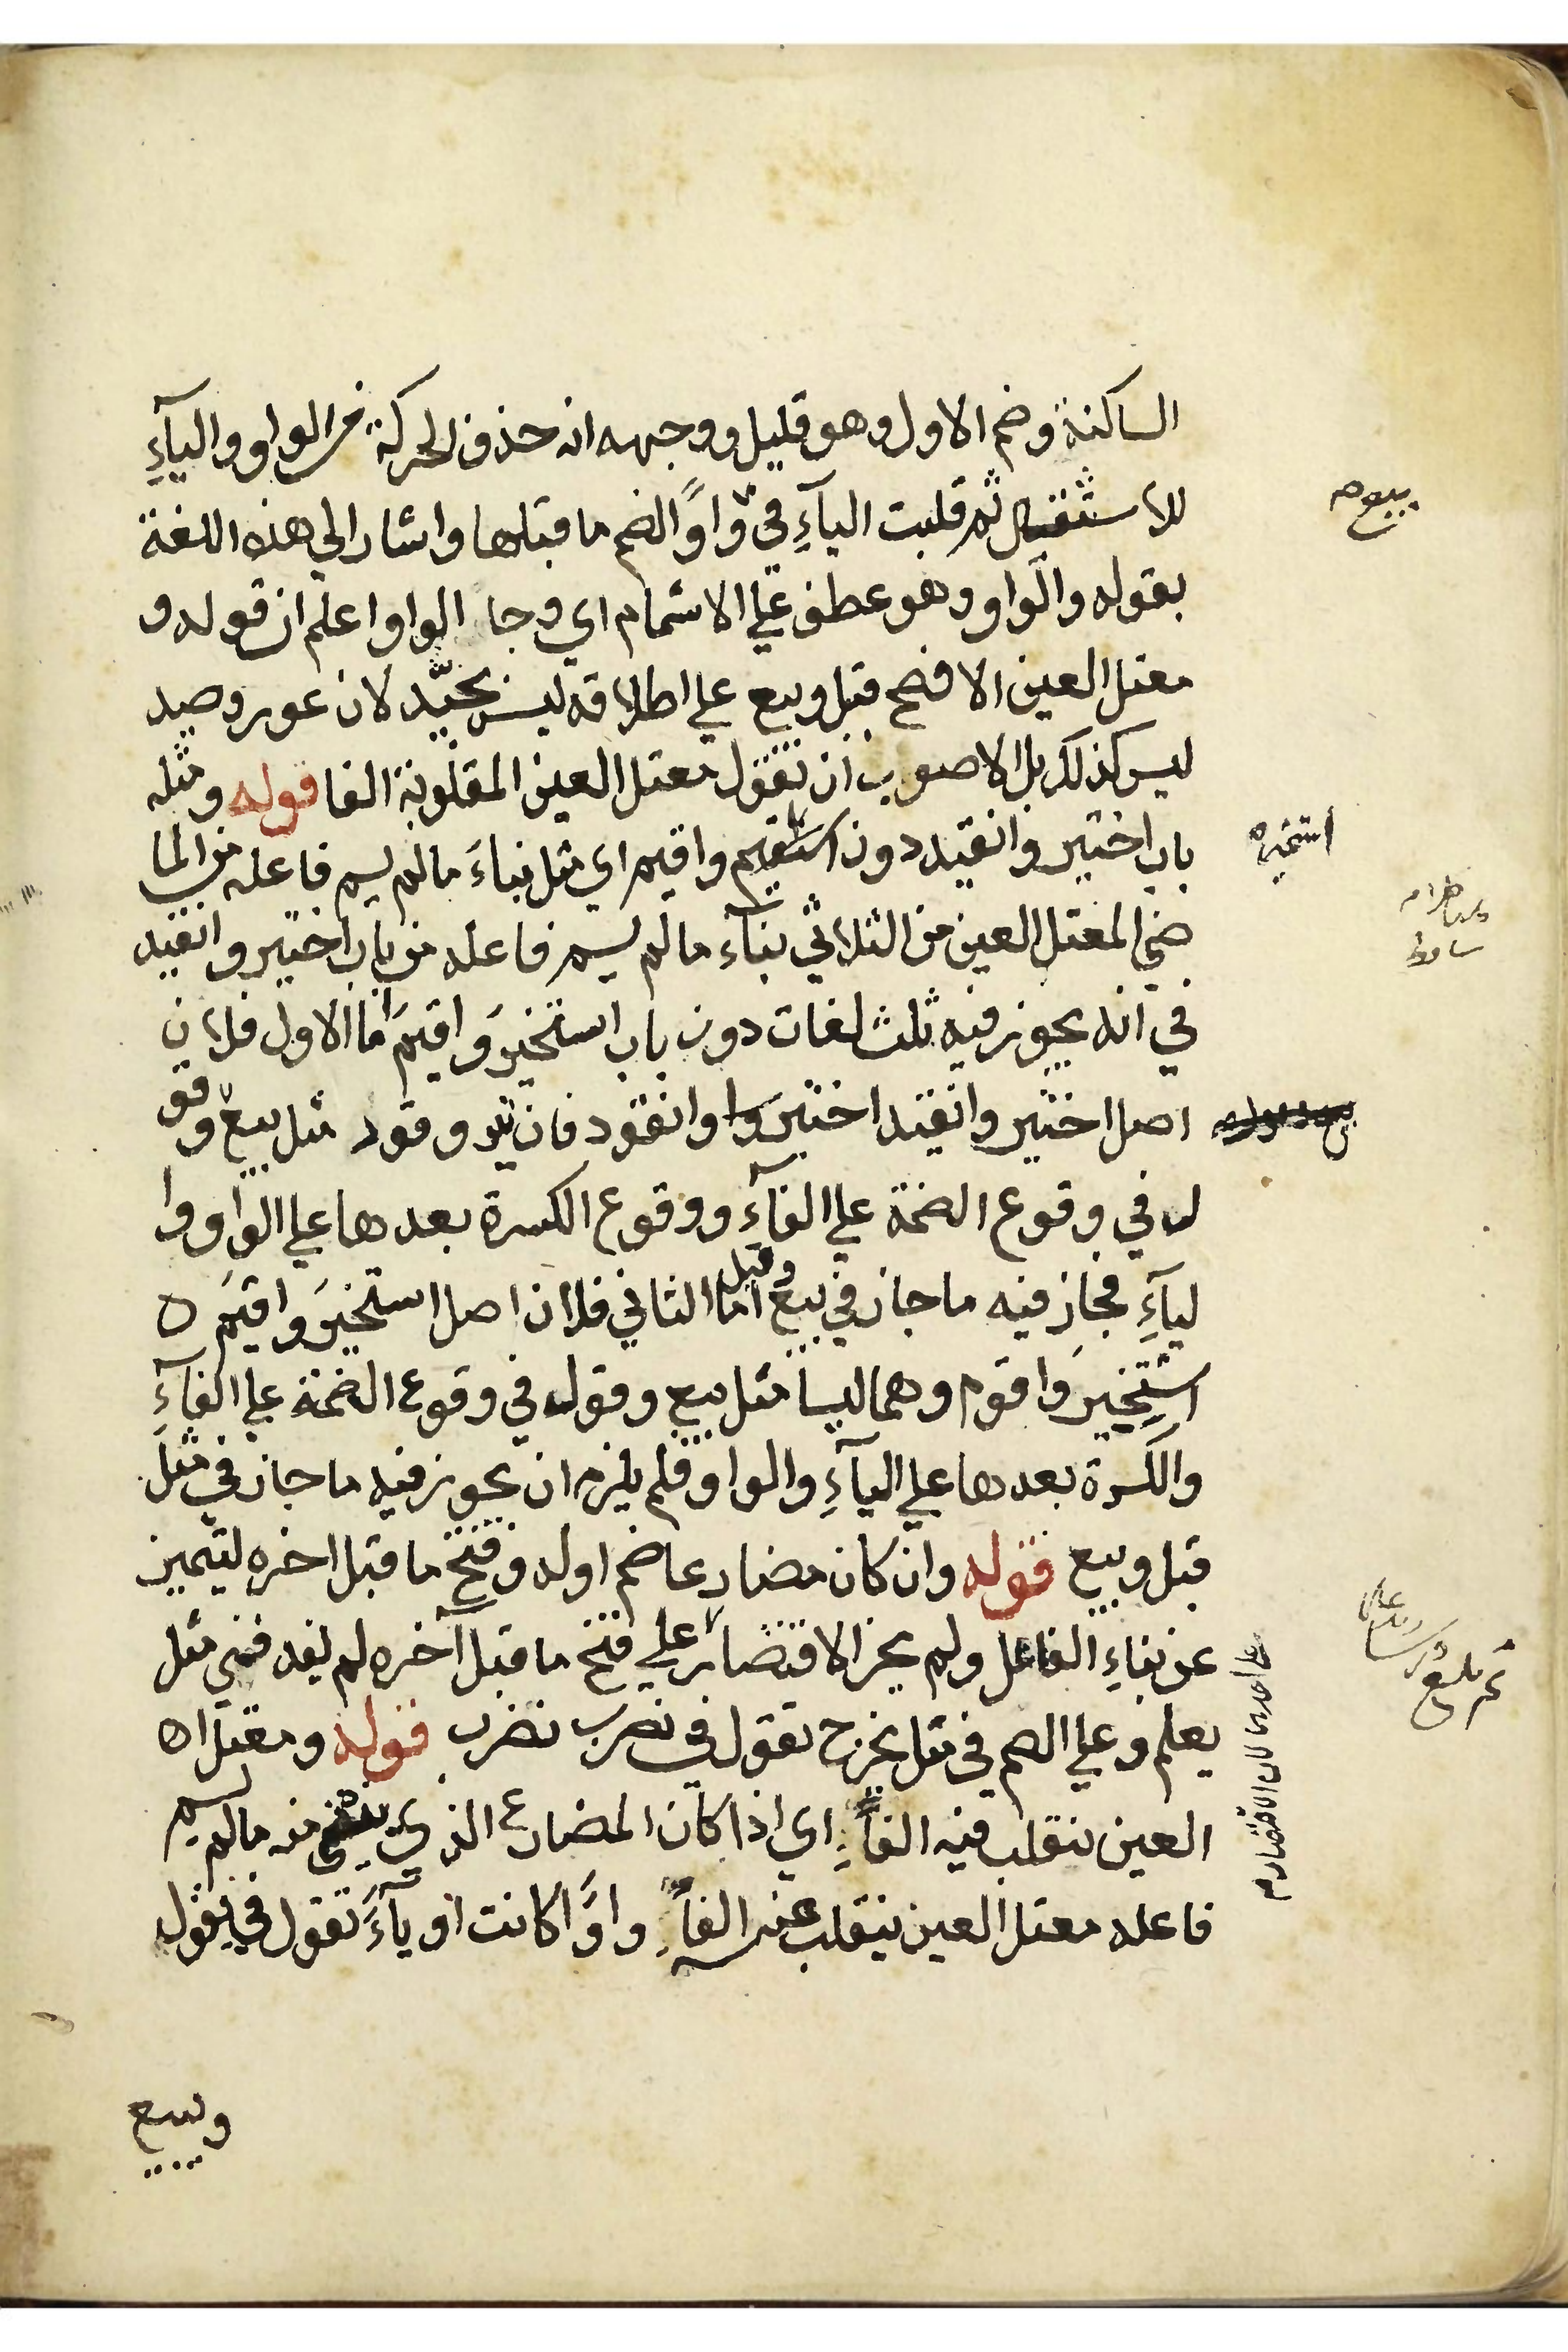 الساكنة وضم الاول وهو قليل ووجهه انه حذف الحركة من الواو والياءِ
للاستثقال ثم قلبت الياءِ في واوًا لضم ما قبلها واشار الي هذه اللغة
بقوله والواو وهو عطف علي الاشمام اي وجا الواو اعلم ان قوله و
معتل العين الافصح قيل وبيع علي اطلاقه ليس بجيّد لان عور وصيد
ليس كذلك بل الاصوب ان تقول معتل العين المقلوبة الفا قوله ومثله
باب اختير وانقيد دون استقيم واقيم اي مثل بناءَ ما لم يسم فاعله من الما
ضي المعتل العين من الثلاثي بنآء ما لم يسم فاعله من باب اختير وانقيد
في انه يجوز فيه ثلث لغات دون باب استخيرَ واقيمَ اما الاول فلان
اصل اختير وانقيد اختير وانقود فان تير وقود مثل بيع وقو
ل في وقوع الضمة علي الفآءِ ووقوع الكسرة بعدها علي الواو وا
ليآءِ فجاز فيه ما جاز في بيع وقيل اما الثاني فلان اصل استخيرَ واقيمَ ه
استخيرَ واقوم وهما ليسا مثل بيع وقول في وقوع الضمة علي الفآءِ
والكسرة بعدها علي اليآءِ والواو فلم يلزم ان يجوز فيه ما جاز في مثل
قيل وبيع قوله وان كان مضارعا ضم اوله وفتح ما قبل اخره ليتميز
عن بناءِ الفاعل ولم يجز الاقتصار علي فتح ما قبل آخره لم يفد في مثل
يعلم وعلي الضم في مثل يخرج تقول في نضرب نضرب قوله ومعتل ا ه
العين تنقلب فيه الفاً اي اذا كان المضارع الذي منه ما لم يسم
فاعله معتل العين ينقلب عينه الفاً واوًا كانت او يآءً تقول في يقول
ويبيع
بيع
استخير
علي احدهما لان الاقتصار